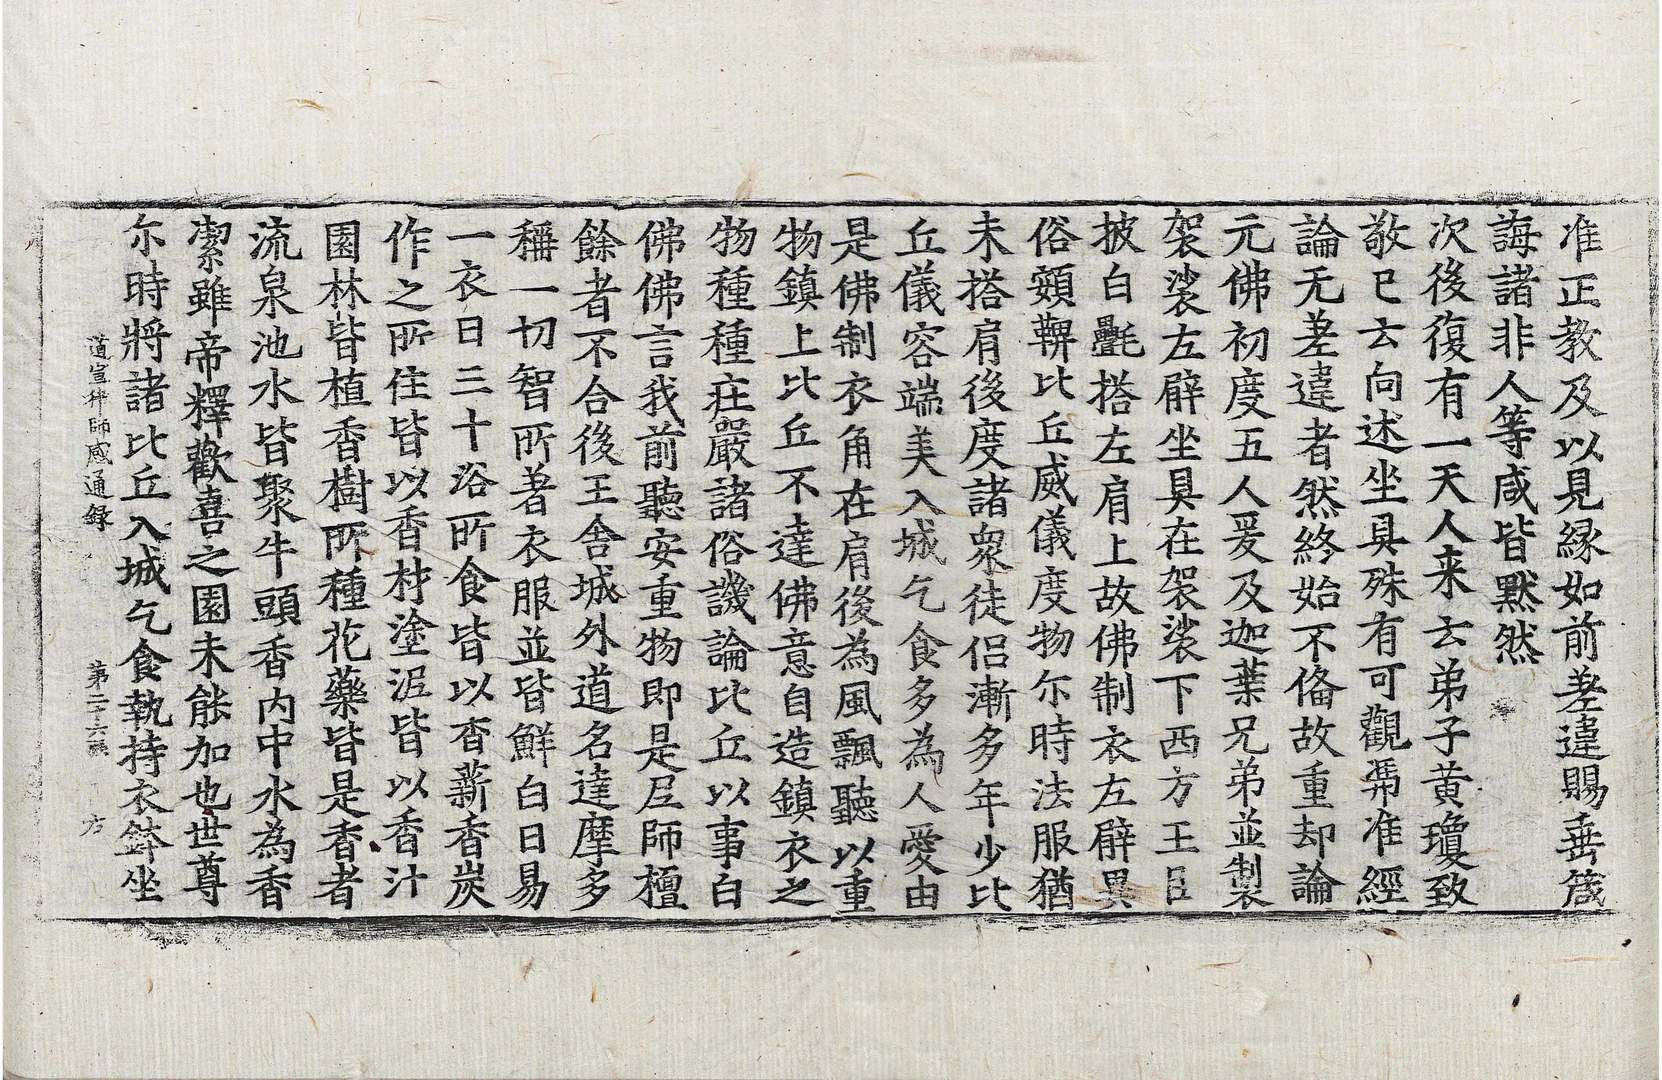 准正教及以見縁如前差違賜垂箴
誨諸非人等咸皆黙然
次後復有一天人来云弟子黄瓊致
敬已云向述坐具殊有可觀第准經
論无差違者然終始不俻故重却論
元佛初度五人爰及迦葉兄弟並製
袈裟左臂坐具在袈裟下西方王臣
披白㲲搭左肩上故佛制衣左臂異
俗頞鞞比丘威儀度物尓時法服猶
未搭肩後度諸衆徒侣漸多年少比
丘儀容端美入城乞食多為人愛由
是佛制衣角在肩後為風飄聽以重
物鎮上比丘不達佛意自造鎮衣之
物種種庄嚴諸俗譏論比丘以事白
佛佛言我前聽安重物即是尼師檀
餘者不合後王舎城外道名達摩多
稱一切智所著衣服並皆鮮白日易
一衣日三十浴所食皆以香薪香炭
作之所住皆以香材塗泥皆以香汁
園林皆植香樹所種花藥皆是香者
流泉池水皆聚牛頭香内中水為香
潔雖帝釋歡喜之園未能加也世尊
尓時將諸比丘入城乞食執持衣鉢坐
道宣律師感通録　第二十六張　方